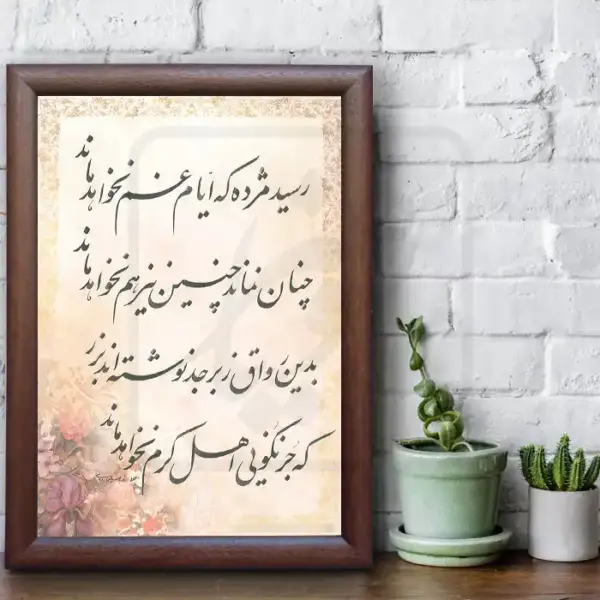 رسید مژده که ایّام غم نخواهد ماند
چنان نماند چنین نیز هم نخواهد ماند
بدین رواق زبرجد نوشته‌اند بزر
که جز نکویی اهل کرم نخواهد ماند